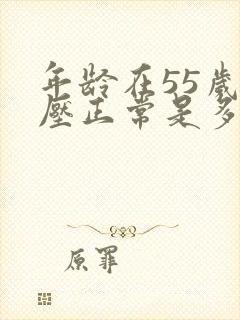 年龄在55岁
压正常是多
原罪